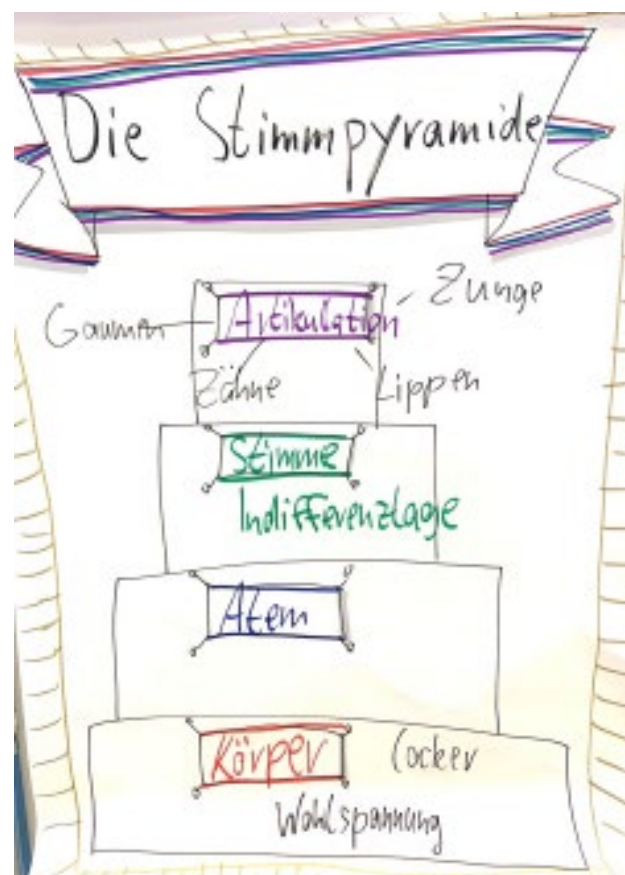 Die Stimmpyramide
Zunge
Gaumen Artikulation
Zähne Lippen
Stimme
Indifferenzlage
Atem
Körper locker
Wohlspannung